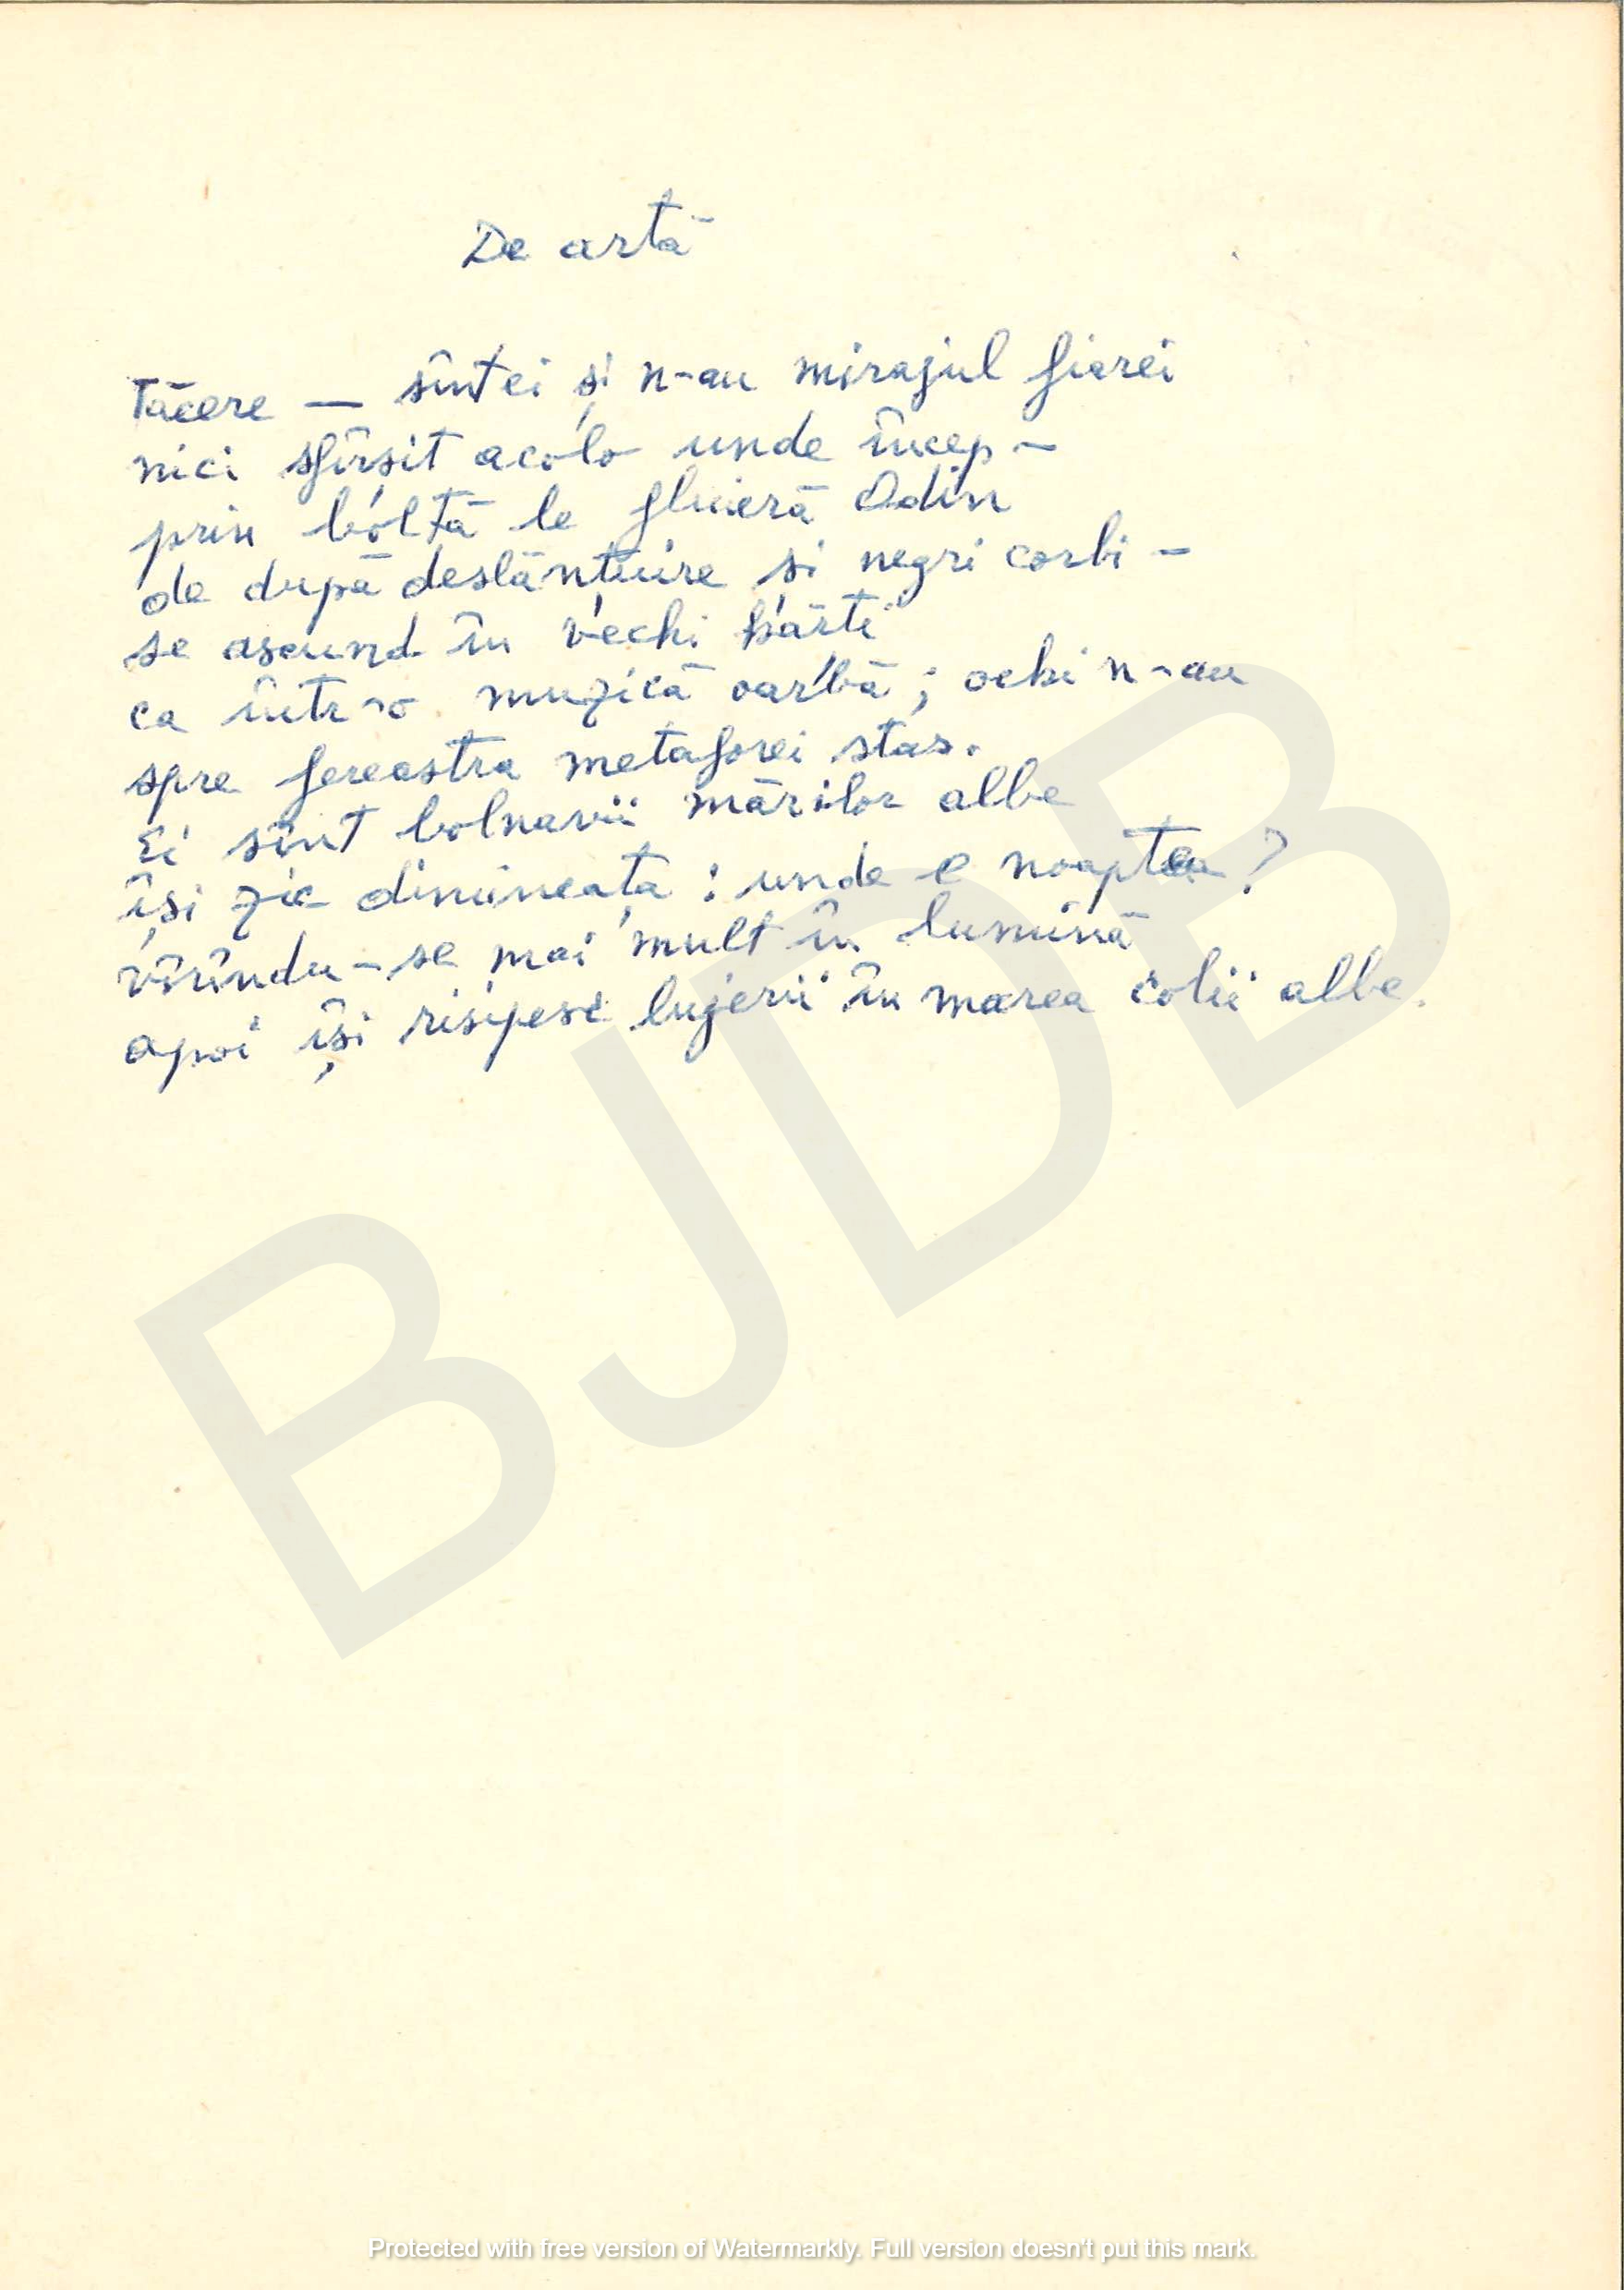 De artă
Tăcere — sînt ei și n-au mirajul fiarei
nici sfîrșit acolo unde încep —
prin boltă le fluieră Odin
de după deslănțuire și negri corbi —
se ascund în vechi hărți
ca într-o muzică oarbă ; ochi n-au
spre fereastra metaforei stas.
Ei sînt bolnavii mărilor albe
își zic dimineața : unde e noaptea ?
vîrîndu-se mai mult în lumină
apoi își risipesc lujerii în marea colii albe.
BJDB
Protected with free version of Watermarkly. Full version doesn't put this mark.